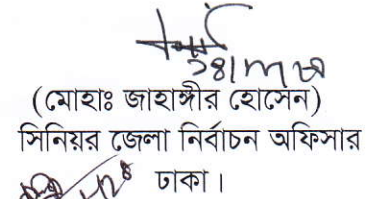 (মোহাঃ জাহাঙ্গীর হোসেন)
সিনিয়র জেলা নির্বাচন অফিসার
ঢাকা।